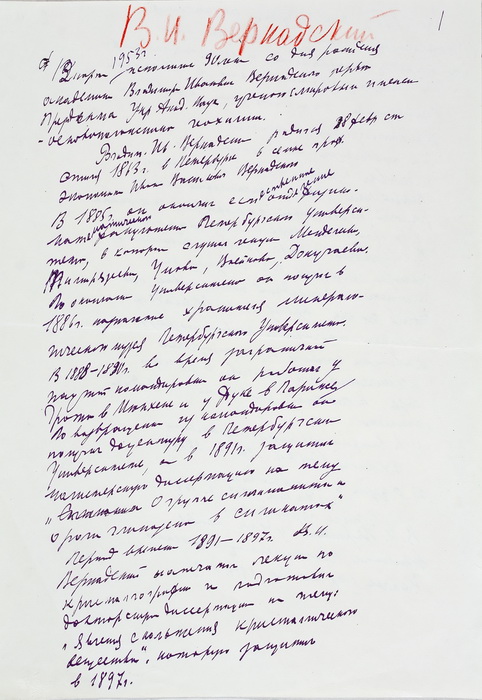 В. И. Вернадский
1
12 марта 1953г. исполнилось 90 лет со дня рождения
академика Владимира Ивановича Вернадского первого
Президента Укр. Акад. Наук, ученого с мировым именем
- основоположника геохимии.
Владим. Ив. Вернадский родился 28 февр ст
стиля 1863г. в Петербурге в семье проф.
экономики Ивана Васильевича Вернадского
В 1885г. он окончил естественное отделение
математического факультета Петербургского Университета,
в котором слушал лекции Менделеева,
Докучаева.
По окончании Университета он получил в
1886г. назначение хранителя минералогического
музея Петербургского Университета.
В 1888-1890г. во время заграничной
командировки он работал у
Грота в Мюнхене и у Фуке в Париже
По возвращении из командировки он
получил доцентуру в Петербургском
Университете, а в 1891г. защитил
магистерскую диссертацию на тему
„ О группе силлиманита и
роли глинозема в силикатах"
Период времени 1891-1897г. В. И.
Вернадский читал лекции по
кристаллографии и подготовил
докторскую диссертацию на тему:
„Явления скольжения кристаллического
вещества", которую защитил
в 1897г.